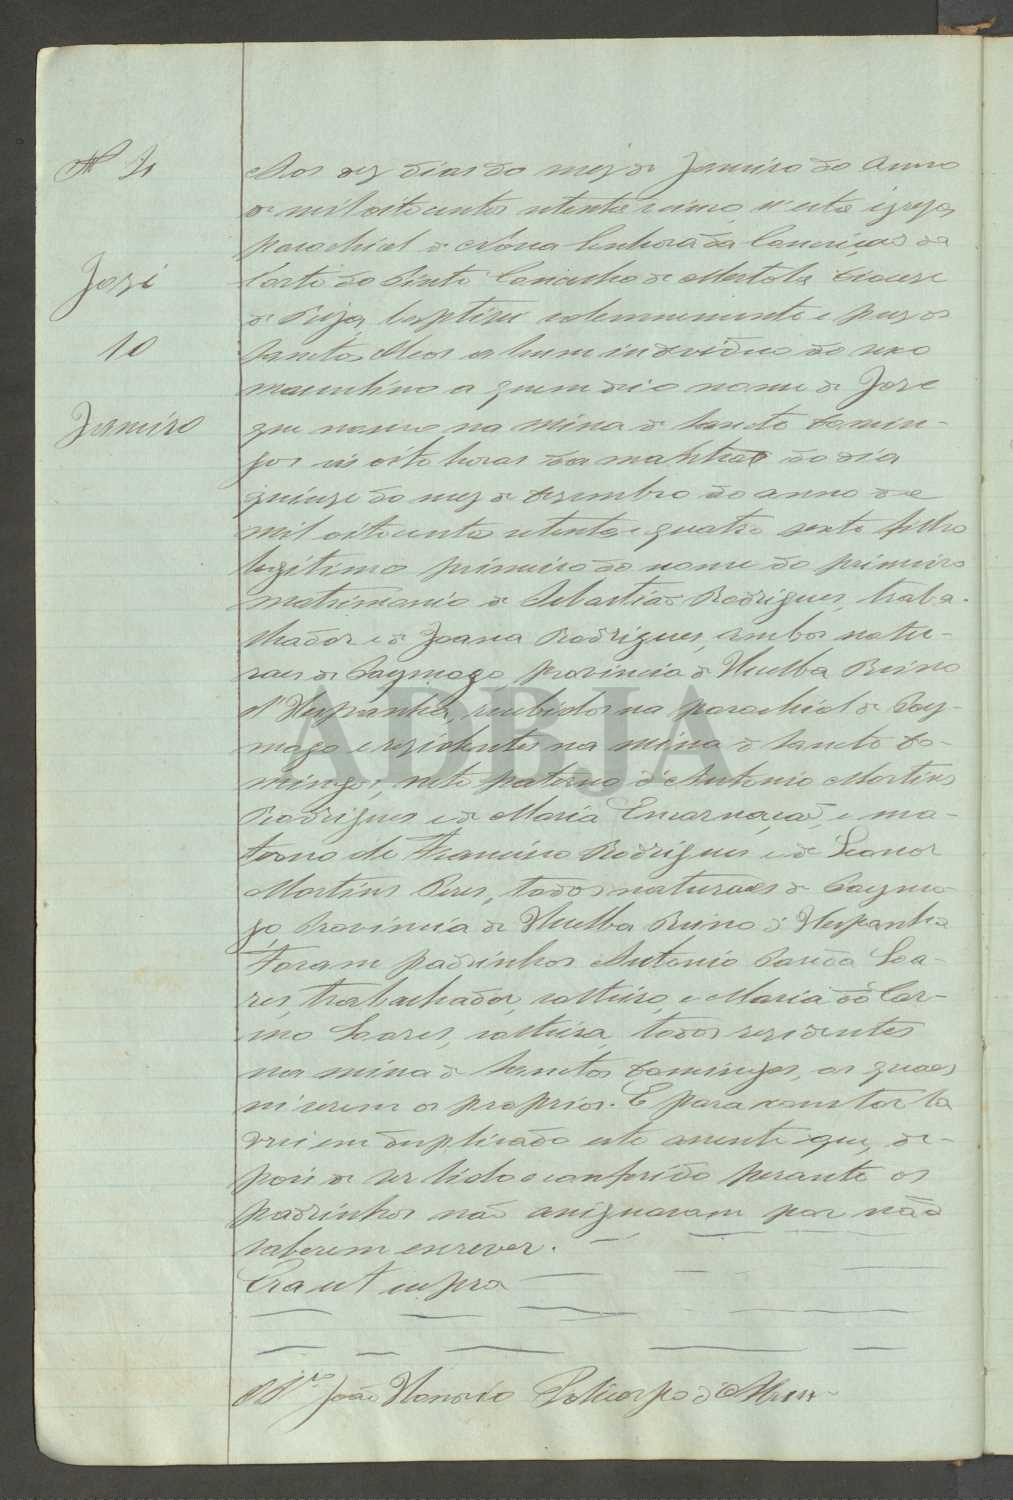 Nº 4
José
10
Janeiro
Aos dez dias do mez de Janeiro do anno
de mil oitocentos setenta e cinco, n'esta igreja
parochial de Nossa Senhora da Conceição da
Corte do Pinto Concelho de Mertola Diocese
de Beja, baptisei solemnemente e puz os
Sanctos Oleos a hum individuo do sexo
masculino a quem dei o nome de José
que nasceu na mina de Sancto Domin-
gos ás oito horas da manhã do dia
quinze do mez de Dezembro do anno de
mil oitocentos setenta e quatro sexto filho
legitimo primeiro do nome do primeiro
matrimonio de Sebastião Rodrigues, traba-
lhador e de Joana Rodrigues, ambos natu-
raes de Paymogo, Provincia de Huelba Reino
d'Hespanha, recebidos na parochial de Pay-
mogo e residentes na mina de Sancto Do-
mingos, neto paterno d'Antonio Martins
Rodrigues e de Maria Encarnação, e ma-
terno de Francisco Rodrigues e de Leonor
Martins Peres, todos naturaes de Paymo-
go, Provincia de Huelba Reino d'Hespanha
Foram padrinhos Antonio Soa-
res, trabalhador, solteiro, e Maria do Car-
mo Soares, solteira, todos residentes
na mina de Sancto Domingos, os quaes
sei serem os proprios. E para constar la
vrei em duplicado este assento que, de-
pois de ser lido e conferido perante os
padrinhos não assignaram por não
saberem escrever.
Era ut supra
João Honorio Policarpo d'
ADBJA